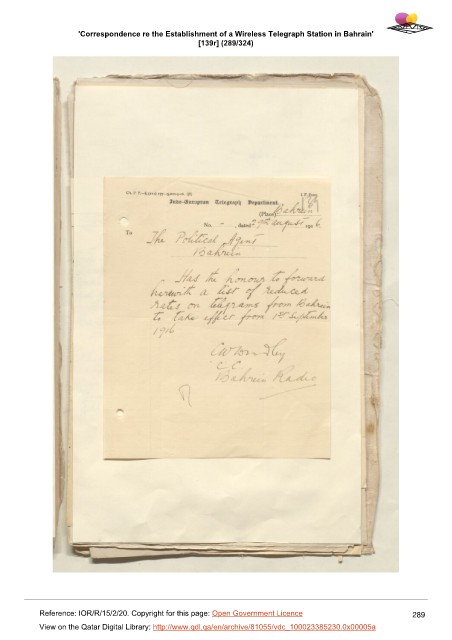 'Correspondence re the Establishment of a Wireless Telegraph Station in Bahrain'
[139r] (289/324)
Indo-European Telegraph Department.
(Place) Bahrain
No. - dated 29th august 191 6
To
The Political Agent
Bahrain
Has the honour to forward
herewith a list of reduced
rates on telegrams from Bahrein
to take effect from 1st September
1916
C C
Bahrein Radio
Reference: IOR/R/15/2/20. Copyright for this page: Open Government Licence
289
View on the Qatar Digital Library: http://www.qdl.qa/en/archive/81055/vdc_100023385230.0x00005a